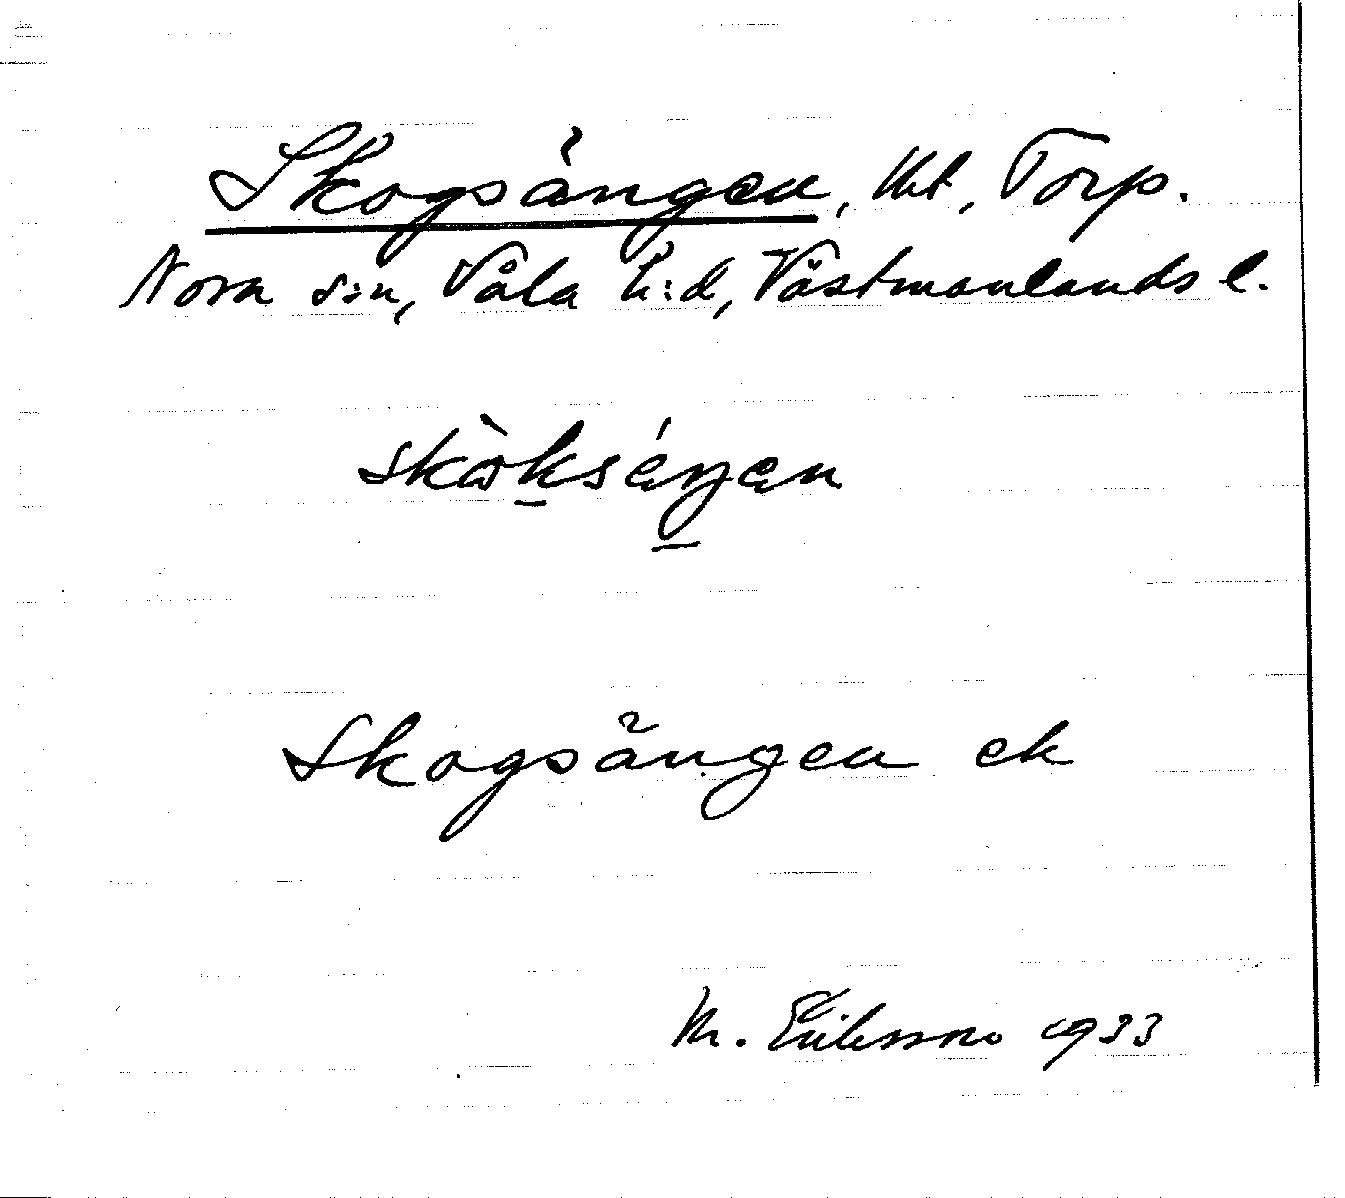 Skogsängen, Ht, Torp.
Nora s:n, Våla h:d, Västmanlands l.
Skogsängen ek
M. Eriksson 1933